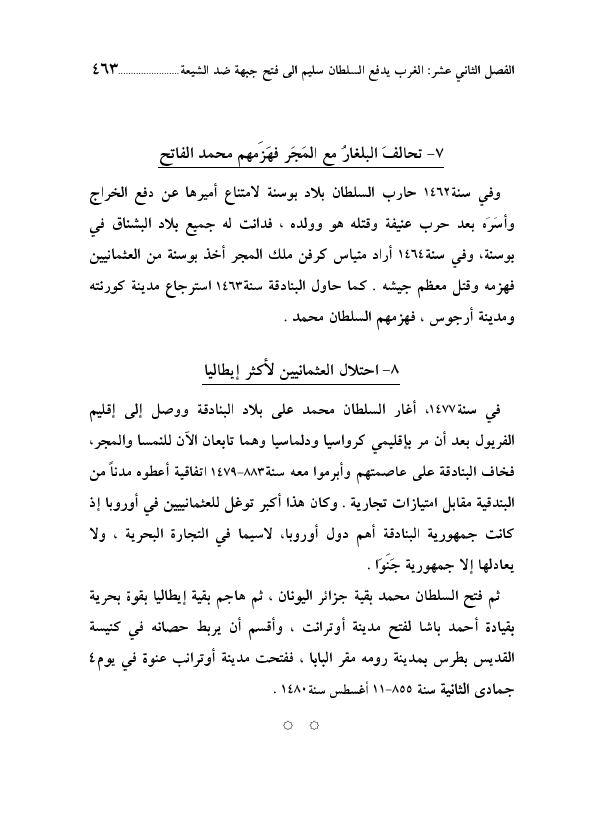 الفصل الثاني عشر: الغرب يدفع السلطان سليم الى فتح جبهة ضد الشيعة ........................٤٦٣
٧- تحالفَ البلغارُ مع المَجَر فهَزَمهم محمد الفاتح
وفي سنة١٤٦٢ حارب السلطان بلاد بوسنة لامتناع أميرها عن دفع الخراج
وأسَرَه بعد حرب عنيفة وقتله هو وولده ، فدانت له جميع بلاد البشناق في
بوسنة، وفي سنة١٤٦٤ أراد متياس كرفن ملك المجر أخذ بوسنة من العثمانيين
فهزمه وقتل معظم جيشه . كما حاول البنادقة سنة١٤٦٣ استرجاع مدينة كورنته
ومدينة أرجوس ، فهزمهم السلطان محمد .
٨- احتلال العثمانيين لأكثر إيطاليا
في سنة١٤٧٧، أغار السلطان محمد على بلاد البنادقة ووصل إلى إقليم
الفريول بعد أن مر بإقليمي كرواسيا ودلماسيا وهما تابعان الآن للنمسا والمجر،
فخاف البنادقة على عاصمتهم وأبرموا معه سنة٨٨٣-١٤٧٩ اتفاقية أعطوه مدناً من
البندقية مقابل امتيازات تجارية . وكان هذا أكبر توغل للعثمانييين في أوروبا إذ
كانت جمهورية البنادقة أهم دول أوروبا، لاسيما في التجارة البحرية ، ولا
يعادلها إلا جمهورية جَنَوَا .
ثم فتح السلطان محمد بقية جزائر اليونان ، ثم هاجم بقية إيطاليا بقوة بحرية
بقيادة أحمد باشا لفتح مدينة أوترانت ، وأقسم أن يربط حصانه في كنيسة
القديس بطرس بمدينة رومه مقر البابا ، ففتحت مدينة أوترانب عنوة في يوم٤
جمادى الثانية سنة ٨٥٥-١١ أغسطس سنة١٤٨٠ .